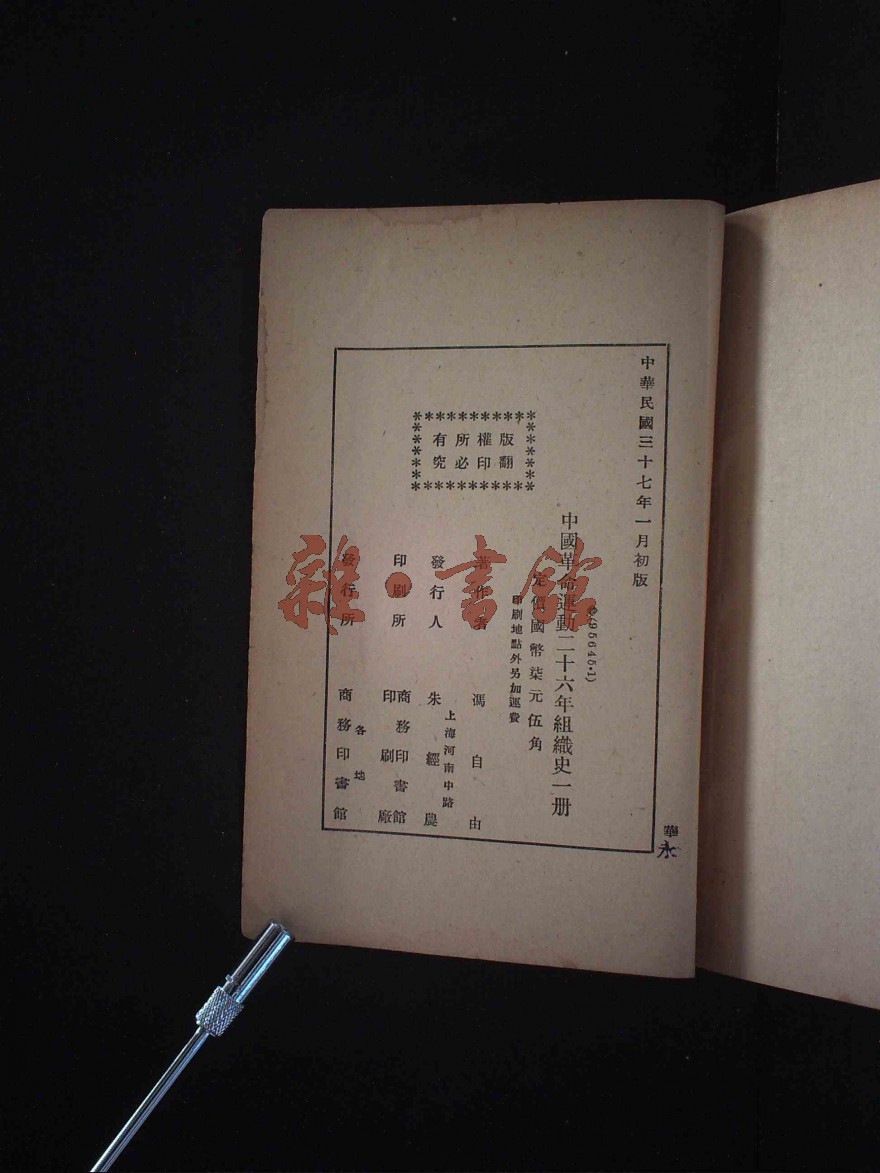 中華民國三十七年一月初版
(95645·1)
中國革命運動二十六年組織史一册
定價國幣柒元伍角
印刷地點外另加運費
版權所有
翻印必究
著作者 馮自由
發行人 朱經農
上海河南中路
印刷所 商務印書館印刷廠
發行所 各地商務印書館
華
永
雜·書館